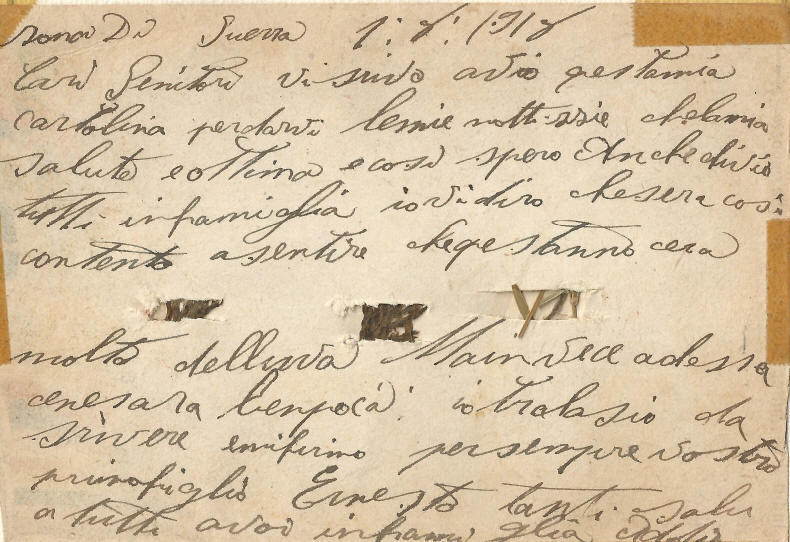 sona Di Guerra 1: 8: 1918
Cari Genitori vi scrivo avoi questamia
cartolina perdarvi lemie nottissie chelamia
salute eottima ecosi spero Anchedivoi
tutti infamiglia iovidiro chesera cosi
contento asentire chequestanno cera
molto delluva Mainvece adessa
cenesara benpoca io tralasio da
srivere emifirmo persempre vostro
primofiglio Ernesto tanti salu
a tutti avoi infamiglia